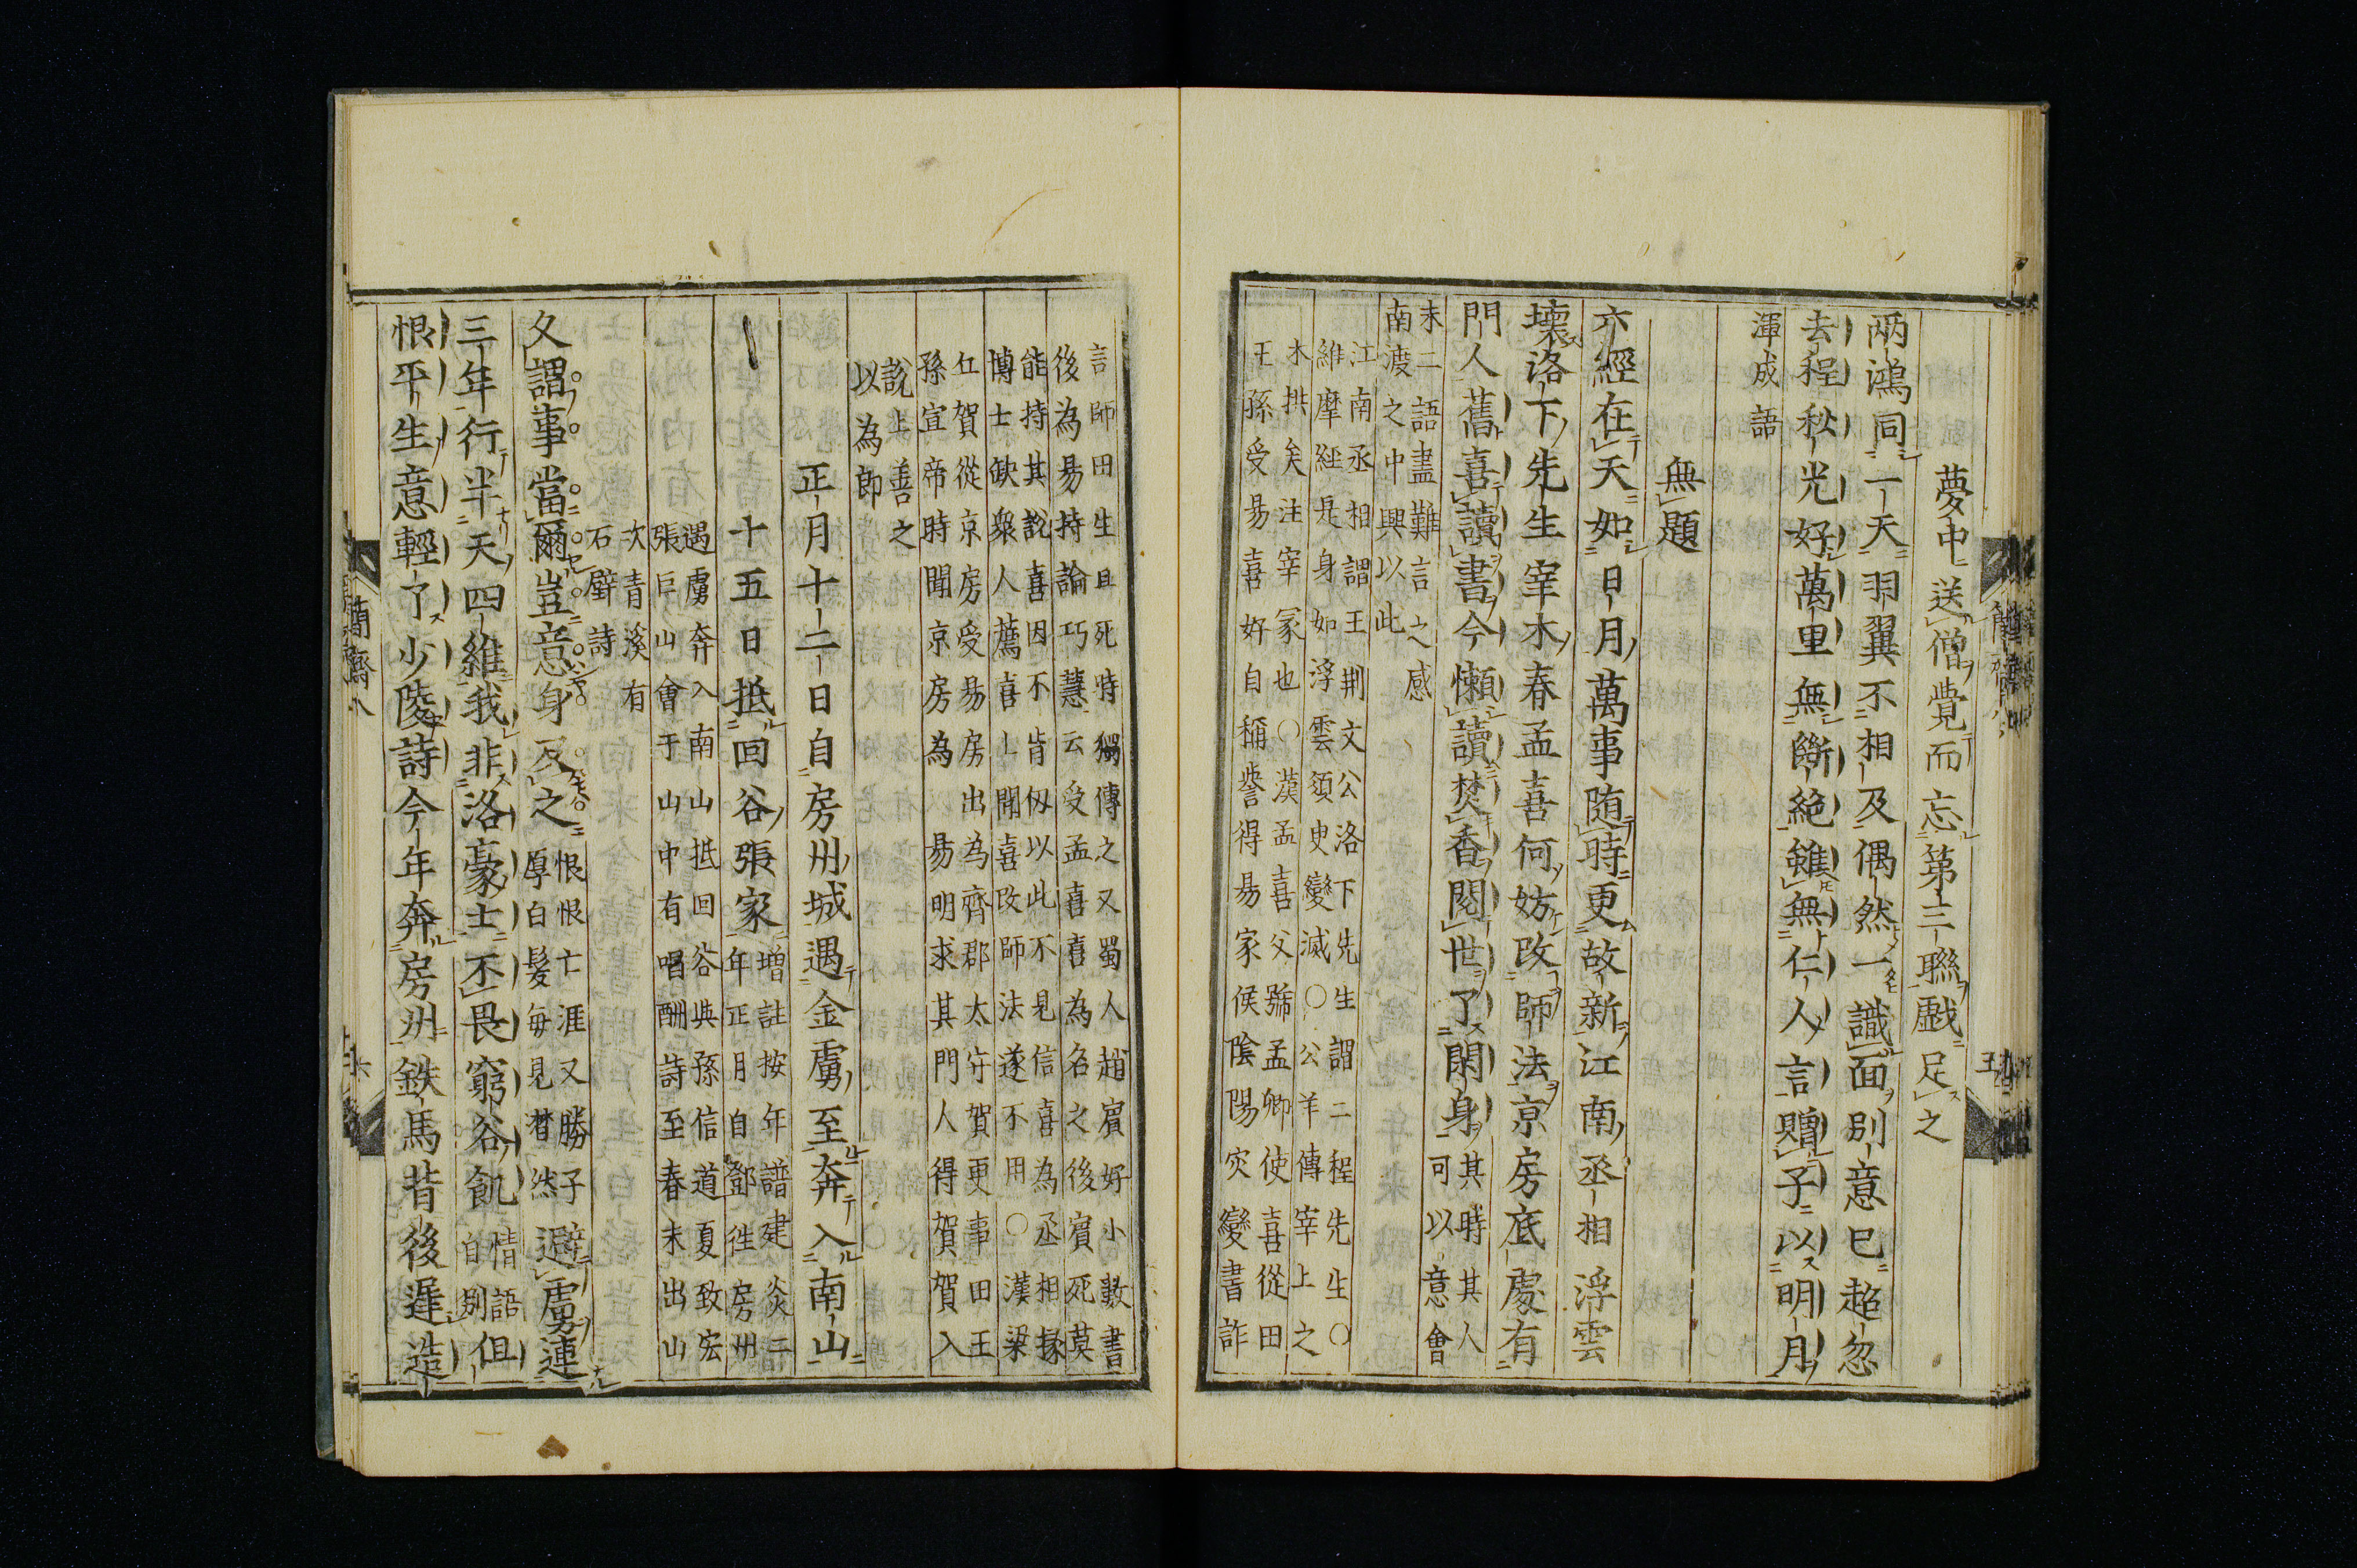 夢中送僧覺而忘第三聯戯足之
兩鴻同一天羽翼不相及偶然一識面別意已超忽
去程秋光好萬里無斷絶雖無仁人言贈子以明月
渾成語
無題
六經在天如日月萬事隨時更故新江南丞相浮雲
壞洛下先生宰木春孟喜何妨改師法京房底處有
門人舊喜讀書今懶讀焚香閱世了閑身
其時其人
可以意會
末二語盡難言之感
南渡之中興以此
江南丞相謂王荆文公洛下先生謂二程先生〇
維摩經是身如浮雲須臾變滅〇公羊傳宰上之
木拱矣注宰冢也〇漢孟喜父號孟卿使喜從田
王孫受易喜好自稱譽得易家侯陰陽灾變書詐
言師田生且死時獨傳之又蜀人趙賓好小數書
後為易持論巧慧云受孟喜喜為名之後賓死莫
能持其說喜因不肯仭以此不見信喜為丞相掾
博士缺衆人薦喜上聞喜改師法遂不用〇漢梁
丘賀從京房受易房出為齊郡太守賀更事田王
孫宣帝時聞京房為易明求其門人得賀賀入
說上善之
以為郎
正月十二日自房州城遇金虜至奔入南山
十五日抵回谷張家
増註按年譜建炎二
年正月自鄧徃房州
遇虜奔入南山抵回谷與孫信道夏致宏
張巨山會于山中有唱酬詩至春末出山
次青溪有
石壁詩
久謂事當爾豈意身及之
恨恨亡涯又勝子
厚白髮每見㬱然
避虜連
三年行半天四維我非洛豪士不畏窮谷飢
情語
自別
但
恨平生意輕了少陵詩今年奔房州鉄馬背後遲造
簡齋八
六